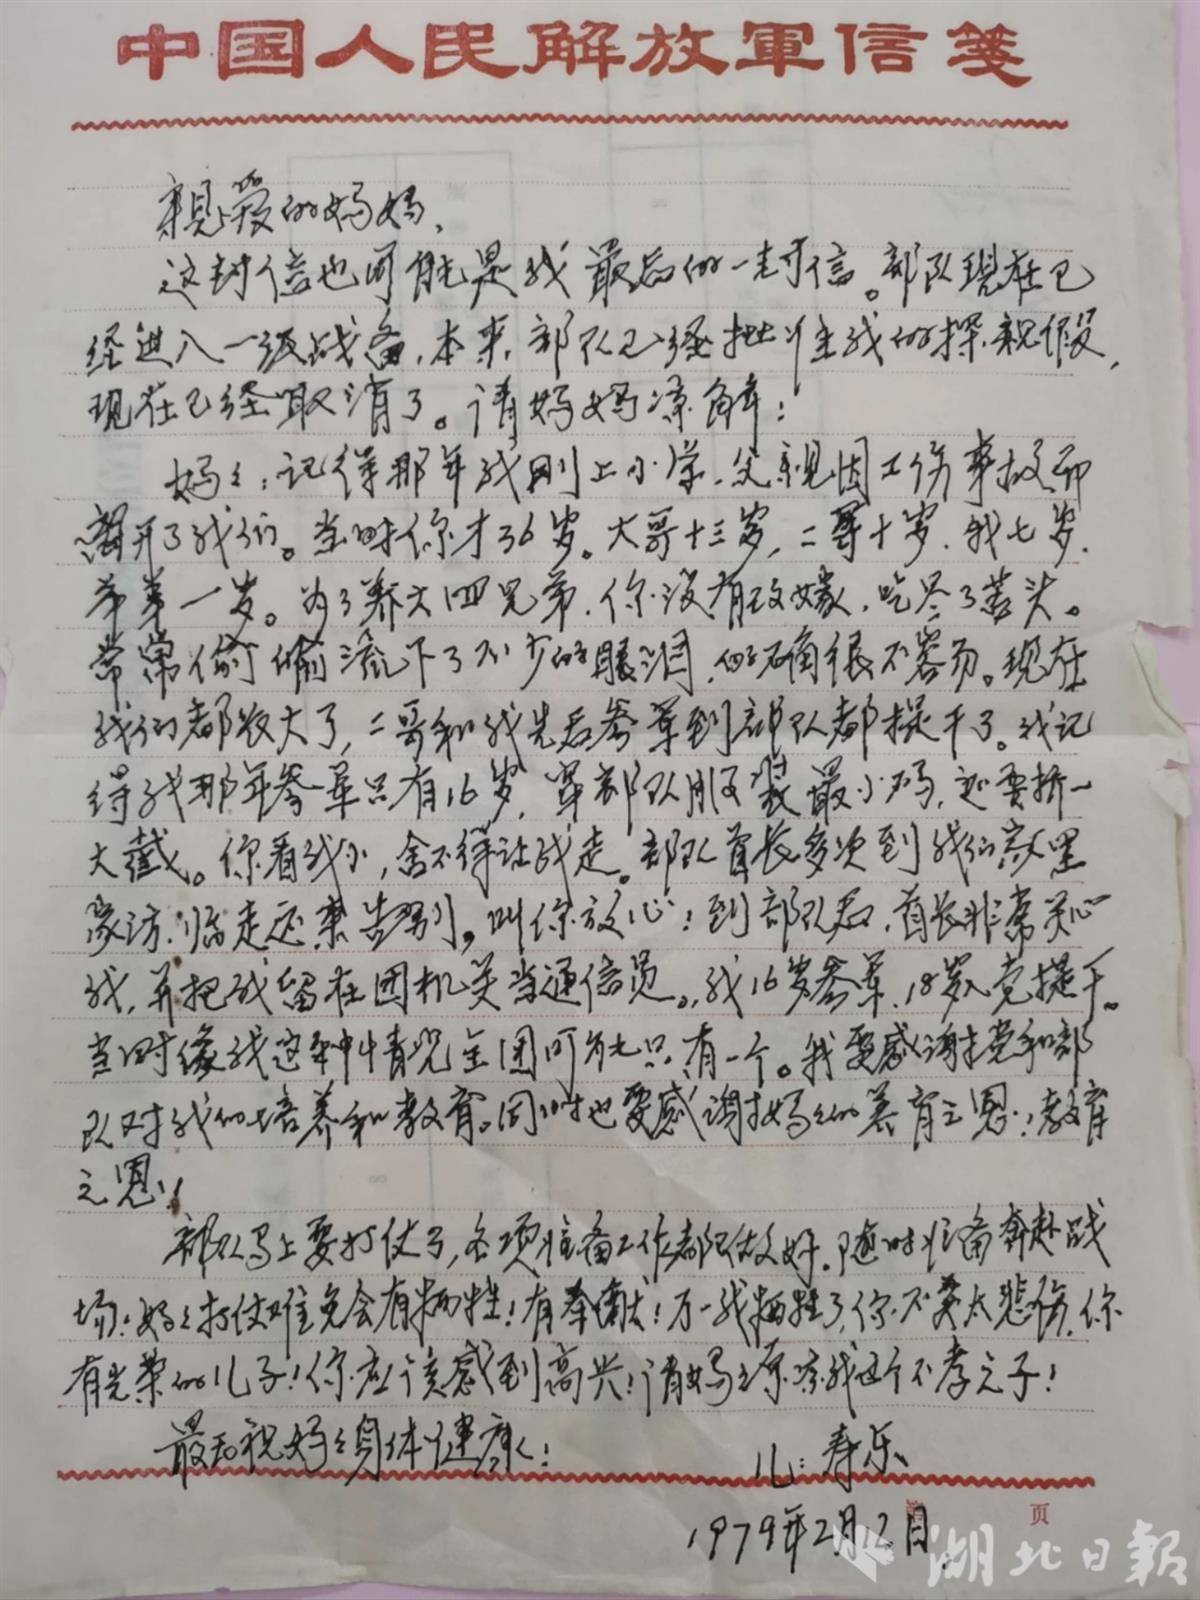 中国人民解放軍信箋
亲爱的妈妈、
这封信也可能是我最后的一封信。部队现在已
经进入一级战备，本来，部队已经批准我的探亲假，
现在已经取消了。请妈妈凉解：
妈々：记得那年我刚上小学，父亲因工伤事故而
离开了我们。当时你才36岁。大哥十三岁，二哥十岁，我七岁，
弟弟一岁。为了养大四兄弟，你没有改嫁，吃尽了苦头。
常常偷偷流下了不少的眼泪，的确很不容易。现在
我们都长大了，二哥和我先后参军到部队都提干了。我记
得我那年参军只有16岁，军部队服装最小码，还要挢一
大截。你看我小，舍不得让我走。部队首长多次到我们家里
家访，临走还来告别，叫你放心！到部队后，首长非常关心
我，并把我留在团机关当通信员。我16岁参军，18岁入党提干。
当时像我这种情况全团可能只有一个。我要感谢党和部
队对我的培养和教育。同时也要感谢妈々的养育之恩！教育
之恩！
部队马上要打仗了，各项准备工作都已做好。随时准备奔赴战
场！妈々打仗难免会有牺牲！有奉献！万一我牺牲了，你不要太悲伤，你
有光荣的儿子！你应该感到高兴！请妈々原凉我这个不孝之子！
最后祝妈々身体健康！
儿：寿乐
1979年2月2日
页
湖北日報